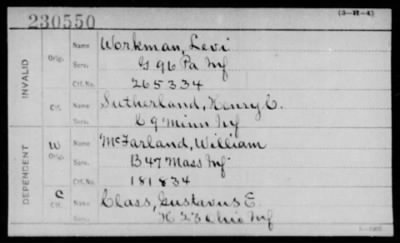 230550
(3-H-4)
INVALID
Orig.
Name Workman, Levi
Serv. G 96 Pa Inf
Ctf. No. 265334
Ctf.
Name Sutherland, Henry C.
Serv. K 9 Minn Inf
DEPENDENT
W
Orig.
Name McFarland, William
Serv. B 47 Mass Inf
Ctf. No. 181834
C
Ctf.
Name Class, Gustavus E.
Serv. K 23 Ohio Inf